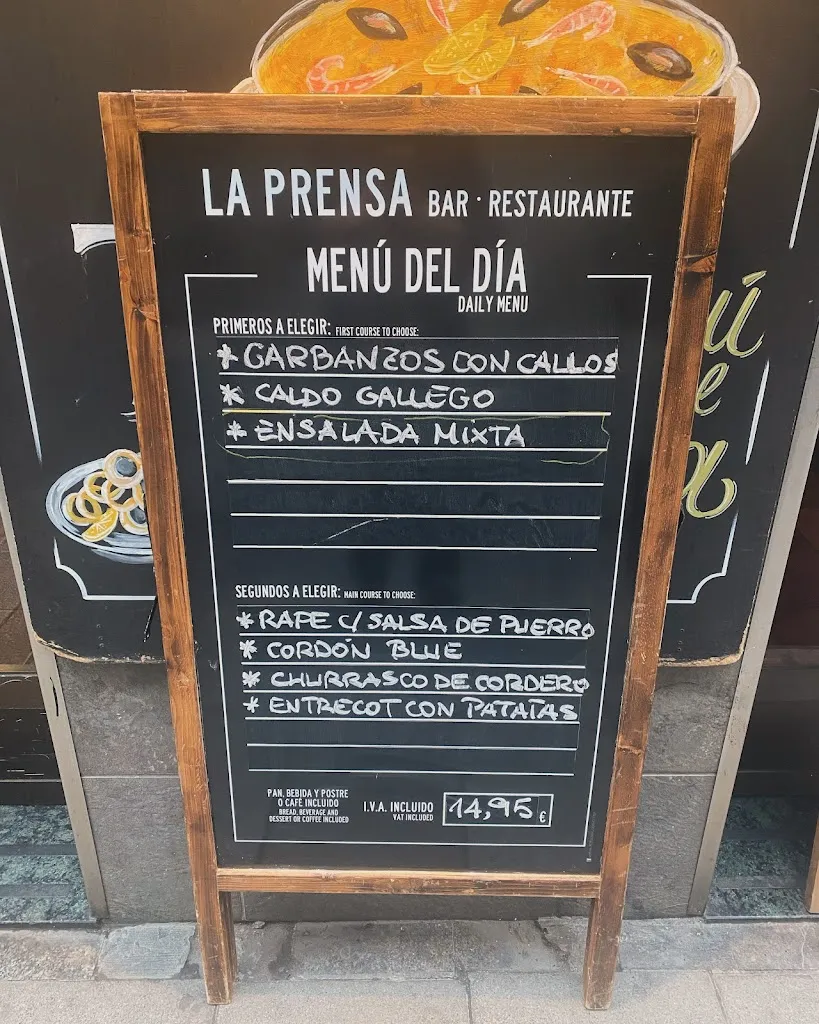 LA PRENSA BAR · RESTAURANTE
MENÚ DEL DÍA
DAILY MENU
PRIMEROS A ELEGIR: FIRST COURSE TO CHOOSE:
* GARBANZOS CON CALLOS
* CALDO GALLEGO
* ENSALADA MIXTA
SEGUNDOS A ELEGIR: MAIN COURSE TO CHOOSE:
* RAPE C/ SALSA DE PUERRO
* CORDÓN BLUE
* CHURRASCO DE CORDERO
* ENTRECOT CON PATATAS
PAN, BEBIDA Y POSTRE
O CAFÉ INCLUIDO
BREAD, BEVERAGE AND
DESSERT OR COFFEE INCLUDED
I.V.A. INCLUIDO
VAT INCLUDED
14,95 €